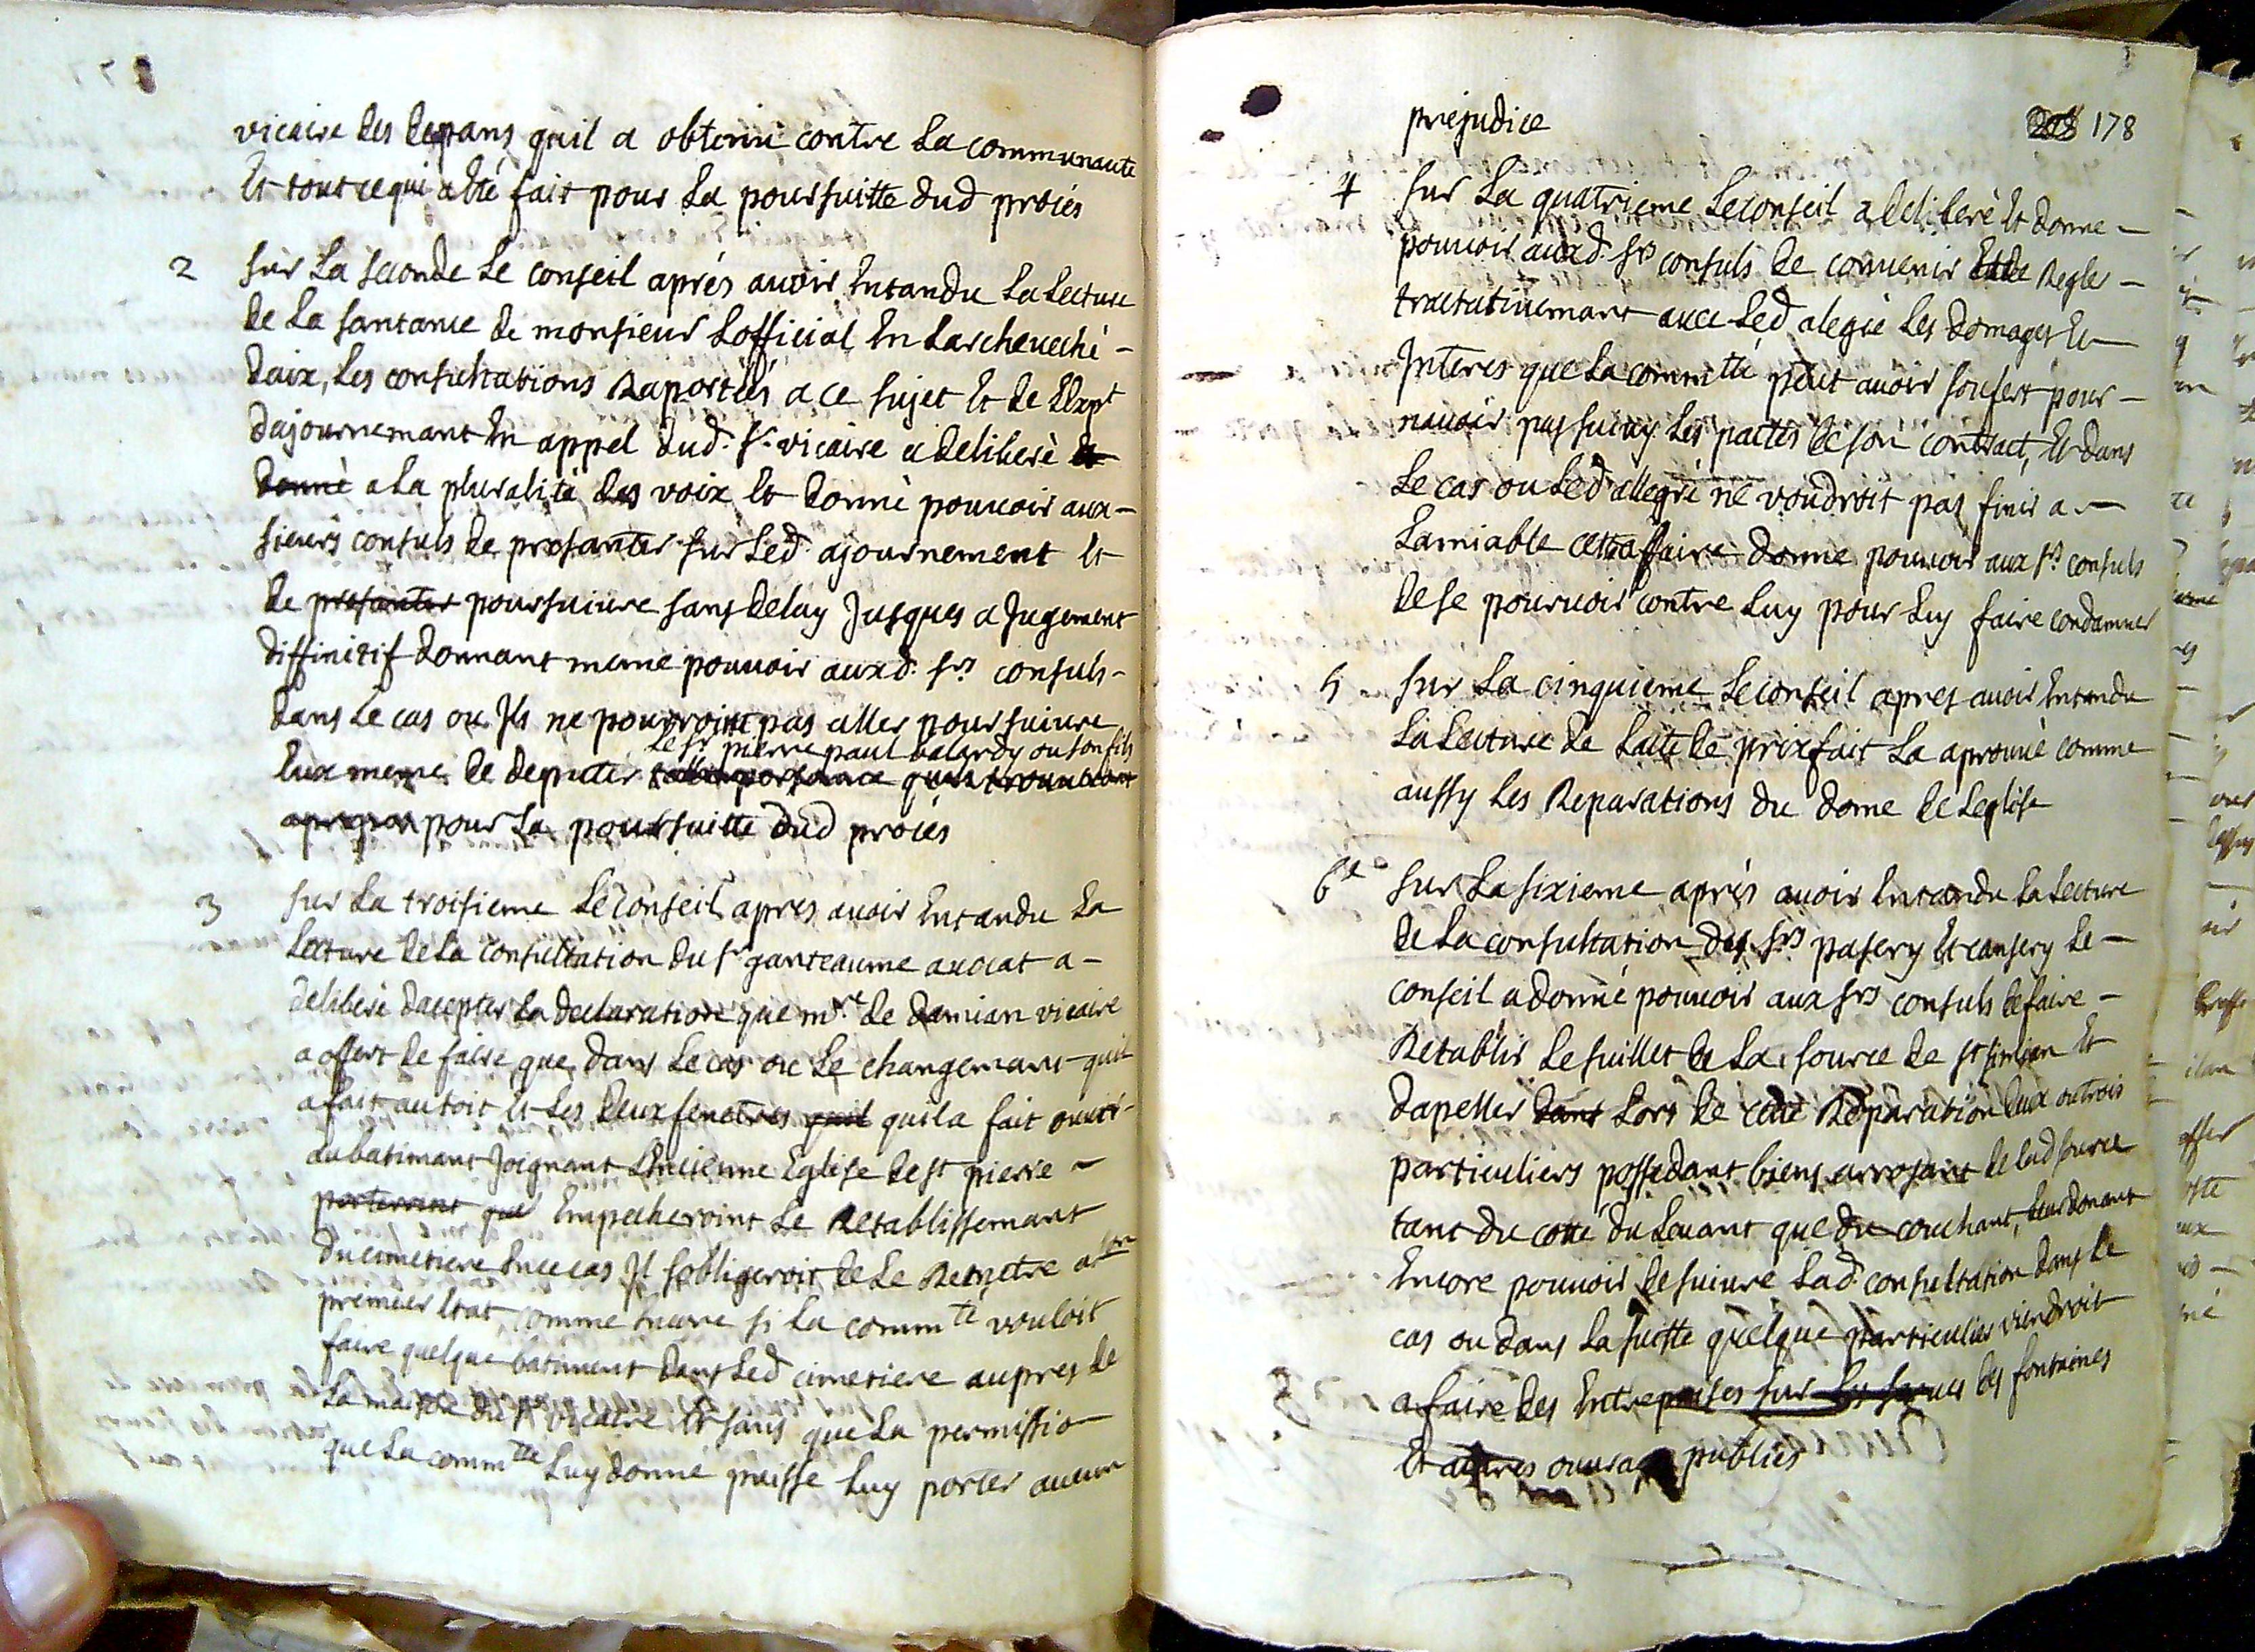 vicaire des depans quil a obtenu contre La communauté
Et tout ce qui a eté fait pour La poursuitte dud procés
2 sur La seconde Le conseil aprés avoir Entandu La Lecture
de La santance de monsieur Lofficial En Larcheveché -
daix, Les consultations Raportées a ce sujet Et de LExpt
dajournemant En appel dud. sr. vicaire a deliberè et
donnè a La pluralité des voix Et donnè pouvoir aux -
sieurs consuls de presanter sur Led. ajournement Et
de presanter poursuivre sans delay Jusques a Jugement
diffinitif donnant meme pouvoir auxd. srs consuls -
dans Le cas ou Ils ne pourroint pas aller poursuivre
Le sr pierre paul balardy ou son fils
Eux meme de deputer telle personne quils trouveront
apropos pour La poursuitte dud procés
3 sur La troisieme Le Conseil apres avoir Entandu La
Lecture de La Consultation du sr ganteaume avocat a -
deliberé dacepter La declaration que mre de damian vicaire
a offert de faire que dans Le cas ou Le changemant quil
a fait au toit Et Les deux fenetres quil quil a fait ouvrir
au batimant Joignant Lencienne Eglise de st pierre ~
porteroint que Empecheroint Le Retablissemant
du cimetiere En ce cas Il sobligeroit de Le Remetre a son
premier Etat, comme Encore si La commte vouloit
faire quelque batiment dans Led cimetiere aupres de
La maison du sr vicaire Et sans que La permissio
que La commte Luy donne puisse Luy porter aucun
prejudice
208 178
4 sur La quatrieme Le conseil a deliberè Et donne -
pouvoir auxd. srs consuls de convenir Et de Regler -
tractativemant avec Led alegre Les domages Et
Interes que La commte peut avoir soufert pour -
navoir pas suivy Les pactes de son contract, Et dans
Le cas ou Led allegre ne voudroit pas finir a -
Lamiable cette affaire donne pouvoir aux srs consuls
de se pourvoir contre Luy pour Luy faire condamner
5 sur La cinquieme Le conseil apres avoir Entandu
La Lecture de Lacte de prix fait La aprouvé comme
aussy Les Reparations du dome de Leglise
6e sur La sixieme aprés avoir Entandu La Lecture
de La consultation des srs pasery Et cansery Le -
conseil a donné pouvoir aux srs consuls de faire -
Retablir Le suillet de La source de st simian Et
dapeller dans Lors de cette Reparation deux ou trois
particuliers possedant biens arrosant de lad source
tant du cotte du Levant que du couchant, Leur donant
Encore pouvoir de suivre Lad. consultation dans Le
cas ou dans La suitte quelque particulier viendroit
a faire des Entreprises sur Les des fontaines
Et autres ouvrages publics